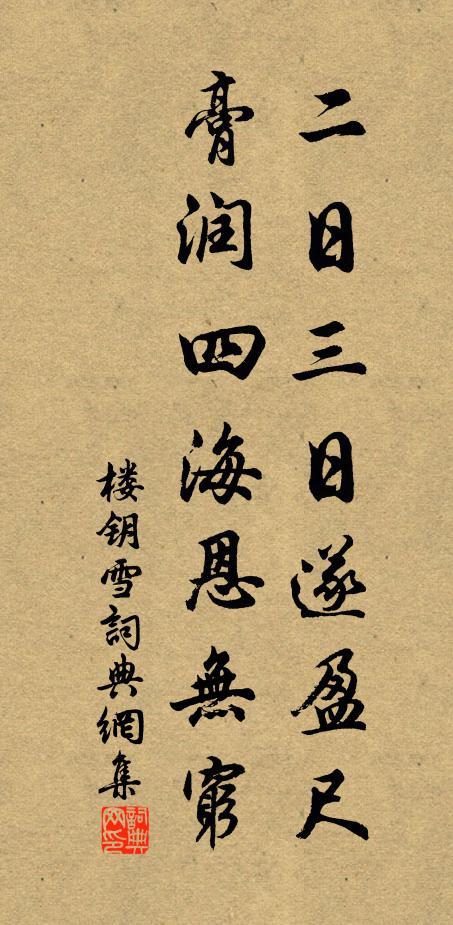 二日三日遂盈尺
膏润四海恩無窮
楼钥雪詞典網集
詞典网印